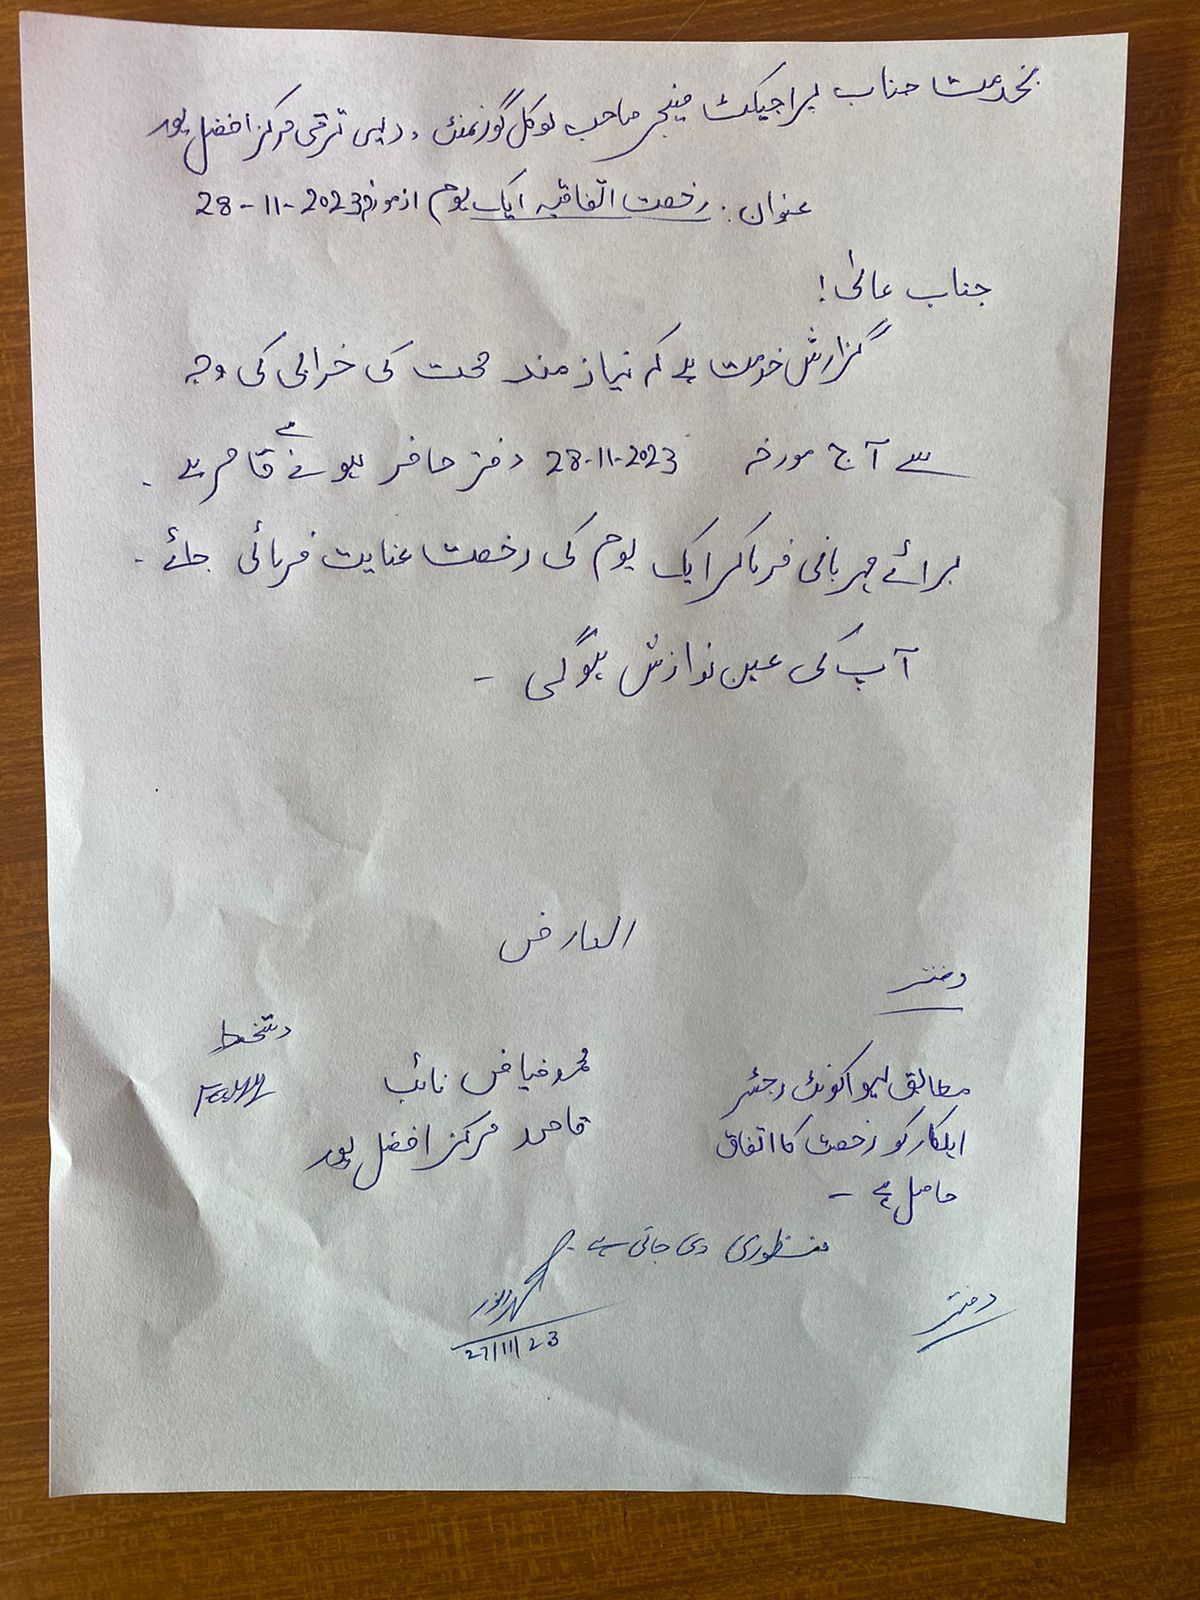 بخدمت جناب پراجیکٹ مینجر صاحب لوکل گورنمنٹ و دیہی ترقی مرکز افضل پور
عنوان: رخصت اتفاقیہ ایک یوم از مورخہ 28-11-2023
جناب عالی!
گزارش خدمت ہے کہ نیاز مند صحت کی خرابی کی وجہ
سے آج مورخہ 28-11-2023 دفتر حاضر ہونے سے قاصر ہے۔
برائے مہربانی فرما کر ایک یوم کی رخصت عنایت فرمائی جائے۔
آپ کی عین نوازش ہو گی۔
العارض
دستخط
محمد فیاض نائب
قاصد مرکز افضل پور
دفتر
مطابق لیو اکونٹ رجسٹر
اہلکار کو رخصت کا اتفاق
حاصل ہے۔
منظوری دی جاتی ہے۔
27/11/23
دفتر